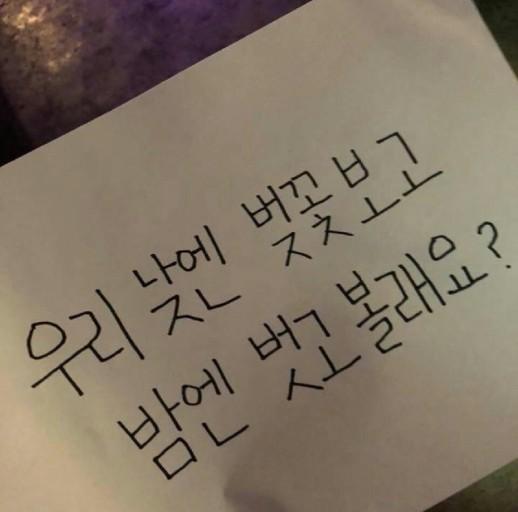 우리 낮엔 벚꽃보고
밤엔 벗고 볼래요?